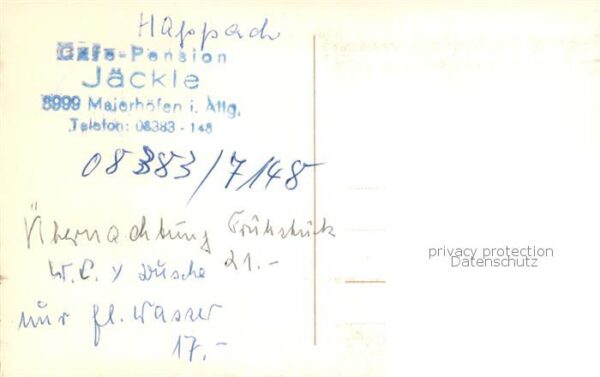 Happach
Café-Pension
Jäckle
8999 Maierhöfen i. Allg.
Telefon: 08383 - 148
08383/7148
Übernachtung Frühstück
W.C. y Dusche 21.-
nur fl. Wasser
17.-
privacy protection
Datenschutz